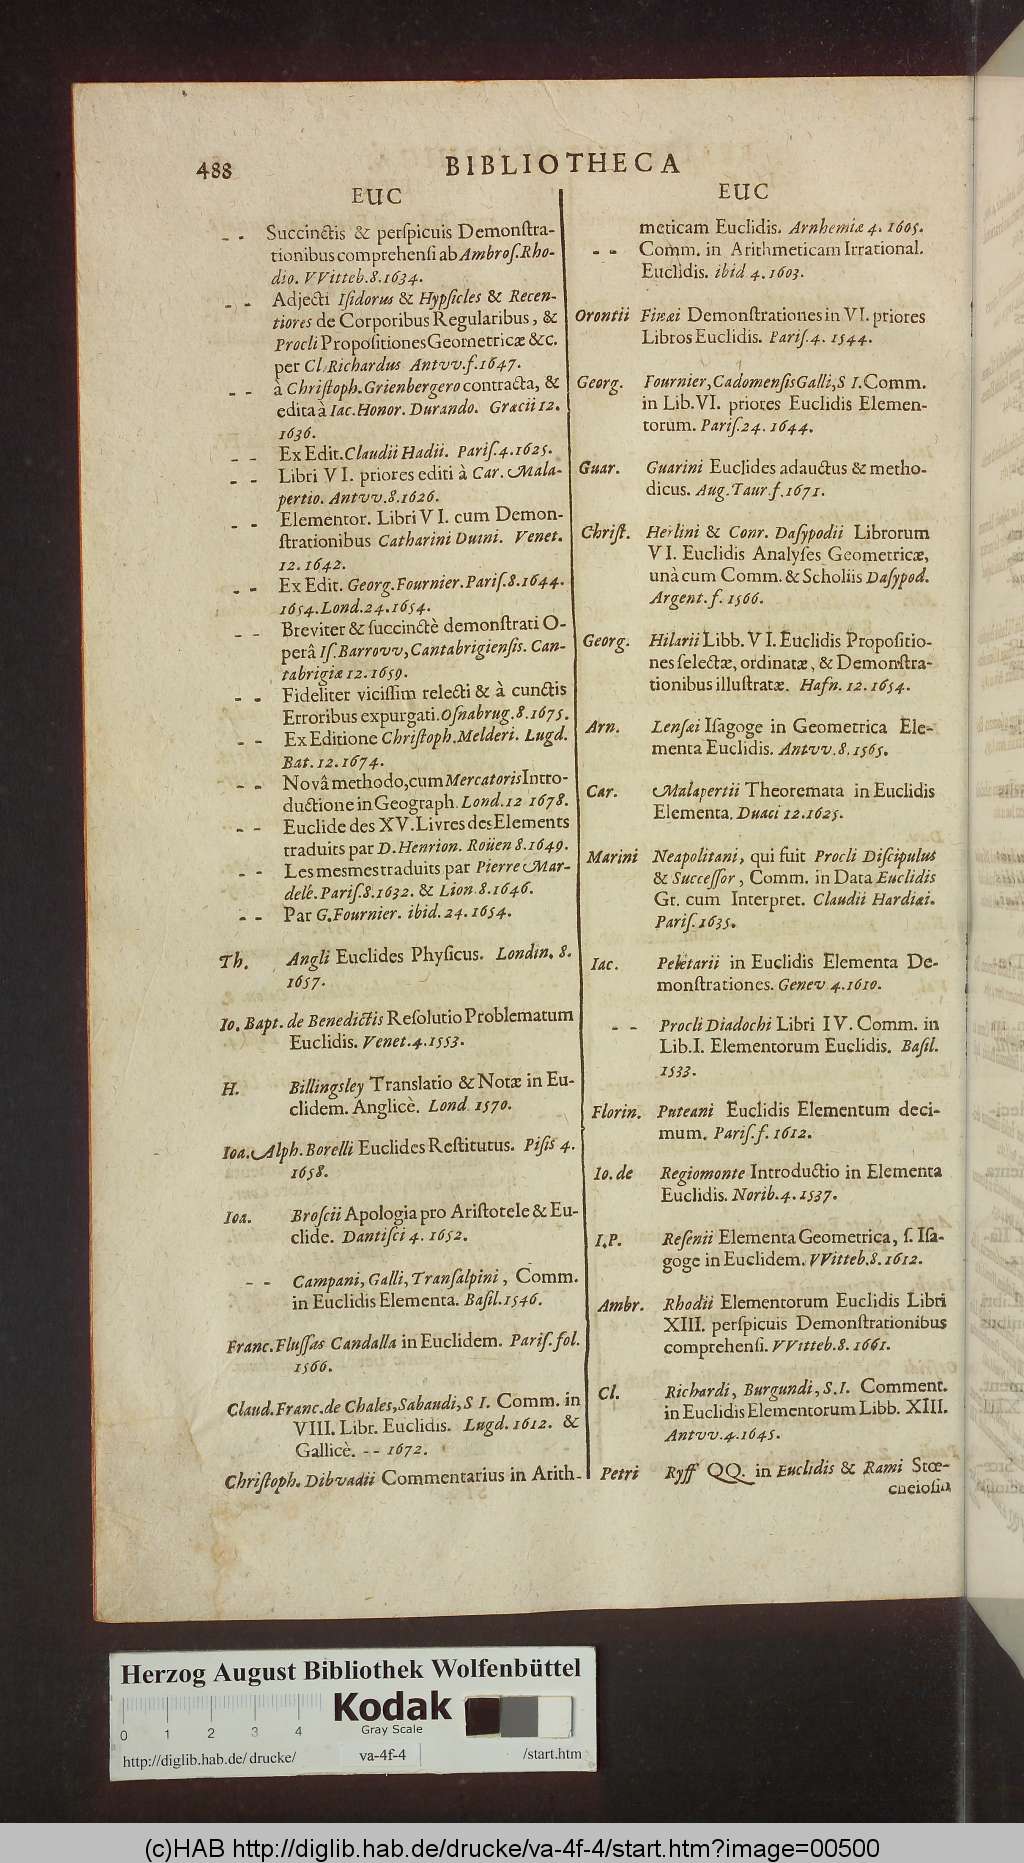 488
BIBLIOTHECA
EUC
- - Succinctis & perſpicuis Demonſtra-
tionibus comprehenſi ab Ambroſ. Rho-
dio. VVitteb. 8. 1634.
- - Adjecti Iſidorus & Hypſicles & Recen-
tiores de Corporibus Regularibus, &
Procli Propoſitiones Geometricæ &c.
per Cl. Richardus Antvv. f. 1647.
- - à Chriſtoph. Grienbergero contracta, &
edita à Iac. Honor. Durando. Græcii 12.
1636.
- - Ex Edit. Claudii Hadii. Pariſ. 4. 1625.
- - Libri VI. priores editi à Car. Mala-
pertio. Antvv. 8. 1626.
- - Elementor. Libri VI. cum Demon-
ſtrationibus Catharini Duini. Venet.
12. 1642.
- - Ex Edit. Georg. Fournier. Pariſ. 8. 1644.
1654. Lond. 24. 1654.
- - Breviter & ſuccinctè demonſtrati O-
perâ Iſ. Barrovv, Cantabrigienſis. Can-
tabrigiæ 12. 1659.
- - Fideliter viciſſim relecti & à cunctis
Erroribus expurgati. Oſnabrug. 8. 1675.
- - Ex Editione Chriſtoph. Melderi. Lugd.
Bat. 12. 1674.
- - Novâ methodo, cum Mercatoris Intro-
ductione in Geograph. Lond. 12 1678.
- - Euclide des XV. Livres des Elements
traduits par D. Henrion. Roüen 8. 1649.
- - Les mesmes traduits par Pierre Mar-
delé. Pariſ. 8. 1632. & Lion 8. 1646.
- - Par G. Fournier. ibid. 24. 1654.
Th. Angli Euclides Phyſicus. Londin. 8.
1657.
Io. Bapt. de Benedictis Reſolutio Problematum
Euclidis. Venet. 4. 1553.
H. Billingsley Translatio & Notæ in Eu-
clidem. Anglicè. Lond 1570.
Ioa. Alph. Borelli Euclides Reſtitutus. Piſis 4.
1658.
Ioa. Broſcii Apologia pro Ariſtotele & Eu-
clide. Dantiſci 4. 1652.
- - Campani, Galli, Tranſalpini, Comm.
in Euclidis Elementa. Baſil. 1546.
Franc. Fluſſas Candalla in Euclidem. Pariſ. fol.
1566.
Claud. Franc. de Chales, Sabaudi, S I. Comm. in
VIII. Libr. Euclidis. Lugd. 1612. &
Gallicè. - - 1672.
Chriſtoph. Dibvadii Commentarius in Arith-
EUC
meticam Euclidis. Arnhemiæ 4. 1605.
- - Comm. in Arithmeticam Irrational.
Euclidis. ibid 4. 1603.
Orontii Finæi Demonſtrationes in VI. priores
Libros Euclidis. Pariſ. 4. 1544.
Georg. Fournier, Cadomenſis Galli, S I. Comm.
in Lib. VI. priores Euclidis Elemen-
torum. Pariſ. 24. 1644.
Guar. Guarini Euclides adauctus & metho-
dicus. Aug. Taur. f. 1671.
Chriſt. Herlini & Conr. Daſypodii Librorum
VI. Euclidis Analyſes Geometricæ,
unà cum Comm. & Scholiis Daſypod.
Argent. f. 1566.
Georg. Hilarii Libb. VI. Euclidis Propoſitio-
nes ſelectæ, ordinatæ, & Demonſtra-
tionibus illuſtratæ. Hafn. 12. 1654.
Arn. Lenſæi Iſagoge in Geometrica Ele-
menta Euclidis. Antvv. 8. 1565.
Car. Malapertii Theoremata in Euclidis
Elementa. Duaci 12. 1625.
Marini Neapolitani, qui fuit Procli Diſcipulus
& Succeſſor, Comm. in Data Euclidis
Gr. cum Interpret. Claudii Hardiæi.
Pariſ. 1635.
Iac. Peletarii in Euclidis Elementa De-
monſtrationes. Genev 4. 1610.
- - Procli Diadochi Libri IV. Comm. in
Lib. I. Elementorum Euclidis. Baſil.
1533.
Florin. Puteani Euclidis Elementum deci-
mum. Pariſ. f. 1612.
Io. de Regiomonte Introductio in Elementa
Euclidis. Norib. 4. 1537.
I. P. Reſenii Elementa Geometrica, ſ. Iſa-
goge in Euclidem. VVitteb. 8. 1612.
Ambr. Rhodii Elementorum Euclidis Libri
XIII. perſpicuis Demonſtrationibus
comprehenſi. VVitteb. 8. 1661.
Cl. Richardi, Burgundi, S. I. Comment.
in Euclidis Elementorum Libb. XIII.
Antvv. 4. 1645.
Petri Ryff QQ. in Euclidis & Rami Stœ-
cheioſin
Herzog August Bibliothek Wolfenbüttel
Kodak
Gray Scale
0 1 2 3 4
http://diglib.hab.de/drucke/ va-4f-4 /start.htm
(c)HAB http://diglib.hab.de/drucke/va-4f-4/start.htm?image=00500